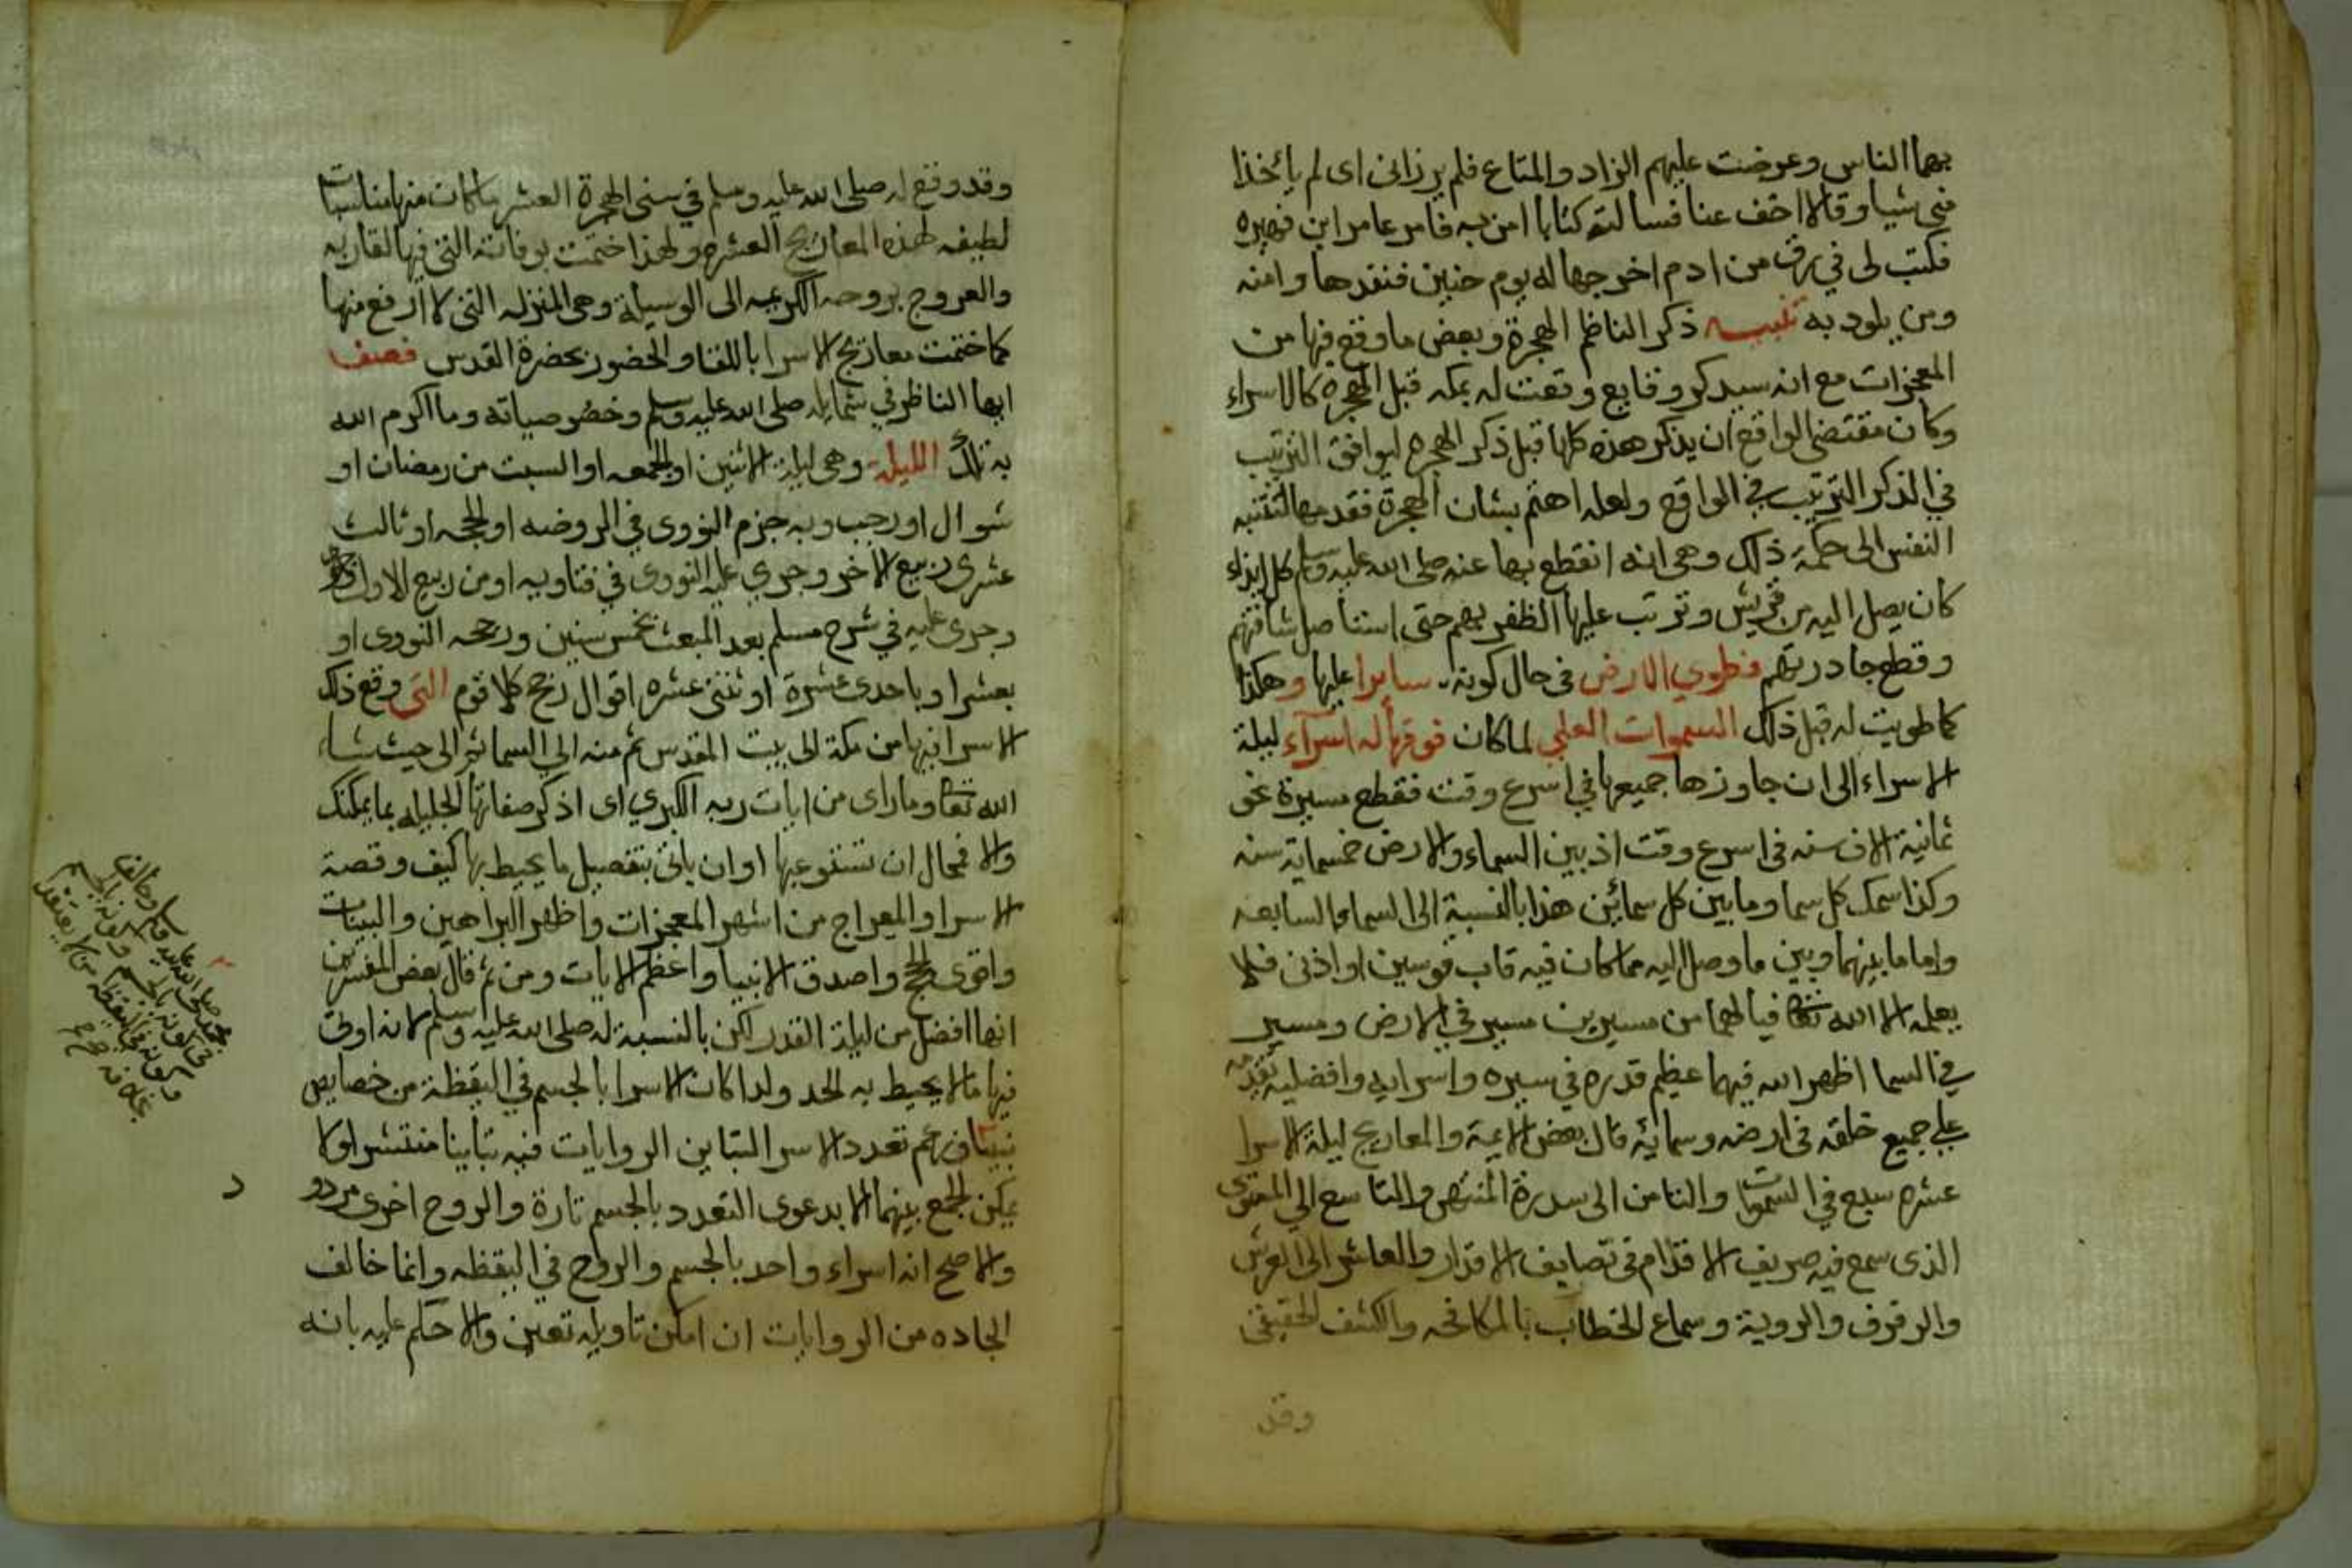 بها الناس وعرضت عليهم الزاد والمتاع فلم يرزاني اى لم ياخذا
مني شيا وقالا اخف عنا فسالته كتابا امن به فامر عامر ابن فهيره
فكتب لى في رق من ادم اخرجها له يوم حنين فنفدها وامنه
ومن يلود به تنبيه ذكر الناظم الهجرة وبعض ما وقع فيها من
المعجزات مع انه سيدكر وقايع وقعت له بمكه قبل الهجره كالاسراء
وكان مقتضى الواقع ان يذكر هذه كلها قبل ذكر الهجره ليوافق الترتيب
في الذكر الترتيب في الواقع ولعله اهتم بشان الهجرة فقدمها لتتنبه
النفس الى حكمة ذلك وهى انه انقطع بها عنه صلى الله عليه وسلم كل ايذاء
كان يصل اليه من قريش وترتب عليها الظفر بهم حتى استاصل شافتهم
وقطع جادرتهم فطوي الارض فى حال كونه سايرا عليها وهكذا
كما طويت له قبل ذلك السموات العلى لما كان فوقها له اسرآء ليلة
الاسراء الى ان جاوزها جميعها في اسرع وقت فقطع مسيرة نحو
ثمانية الاف سنه فى اسرع وقت اذ بين السماء والارض خمسماية سنه
وكذا سمك كل سما وما بين كل سمائين هذا بالنسبة الى السماء السابعه
واما ما بينهما وبين ما وصل اليه مما كان فيه قاب قوسين او ادنى فلا
يعلمه الا الله تعالى فيا لهما من مسيرين مسير في الارض ومسير
في السما اظهر الله فيهما عظيم قدره في سيره واسرايه وافضليه تقدمه
على جميع خلقه فى ارضه وسمايه قال بعض الايمة والمعاريج ليلة الاسرا
عشره سبع في السموات والثامن الى سدرة المنتهى والتاسع الي المستوى
الذى سمع فيه صريف الاقلام في تصايف الاقدار والعاشر الى العرش
والرفرف والروية وسماع الخطاب بالمكافحه والكشف الحقيقى
وقد
وقد وقع له صلى الله عليه وسلم في سنى الهجرة العشر ما كان منها مناسبات
لطيفه لهذه المعاريج العشره ولهذا ختمت بوفاته التى فيها لقا ربه
والعروج بروحه الكريمه الى الوسيلة وهى المنزله التى لا ارفع منها
كما ختمت معاريج الاسرا باللقا والحضور بحضرة القدس فصف
ايها الناظر في شمايله صلى الله عليه وسلم وخصوصياته وما اكرم الله
به تلك الليلة وهى ليلة الاثنين او الجمعه او السبت من رمضان او
شوال او رجب وبه جزم النووى في الروضه او الحجه او ثالث
عشرى ربيع الاخر وجري عليه النووى في فتاويه او من ربيع الاول
وجرى عليه في شرح مسلم بعد المبعث بخمس سنين ورجحه النووى او
بعشر او باحدى عشرة او ثنتى عشره اقوال رجح كلا قوم التى وقع ذلك
الاسرا فيها من مكة الى بيت المقدس ثم منه الى السما ثم الى حيث شاء
الله تعالى وما راى من ايات ربه الكبري اى اذكر صفاتها الجليله بما يمكنك
والا فمحال ان تستوعبها او ان ياتى بتفصيل ما يحيط بها كيف وقصة
الاسرا والمعراج من اشهر المعجزات واظهر البراهين والبينات
واقوى الحج واصدق الانبيا واعظم الايات ومن ثم قال بعض المفسرين
انها افضل من ليلة القدر لكن بالنسبة له صلى الله عليه وسلم لانه اوتى
فيها ما لا يحيط به الحد ولدا كان الاسرا بالجسم في اليقظة من خصايص
نبينا وزعم تعدد الاسرا لتباين الروايات فيه تباينا منتشرا ولا
يمكن الجمع بينهما الا بدعوى التعدد بالجسم تارة والروح اخرى مردود
والاصح انه اسراء واحد بالجسم والروح في اليقظه وانما خالف
الجاده من الروايات ان امكن تاويله تعين والا حكم عليه بانه